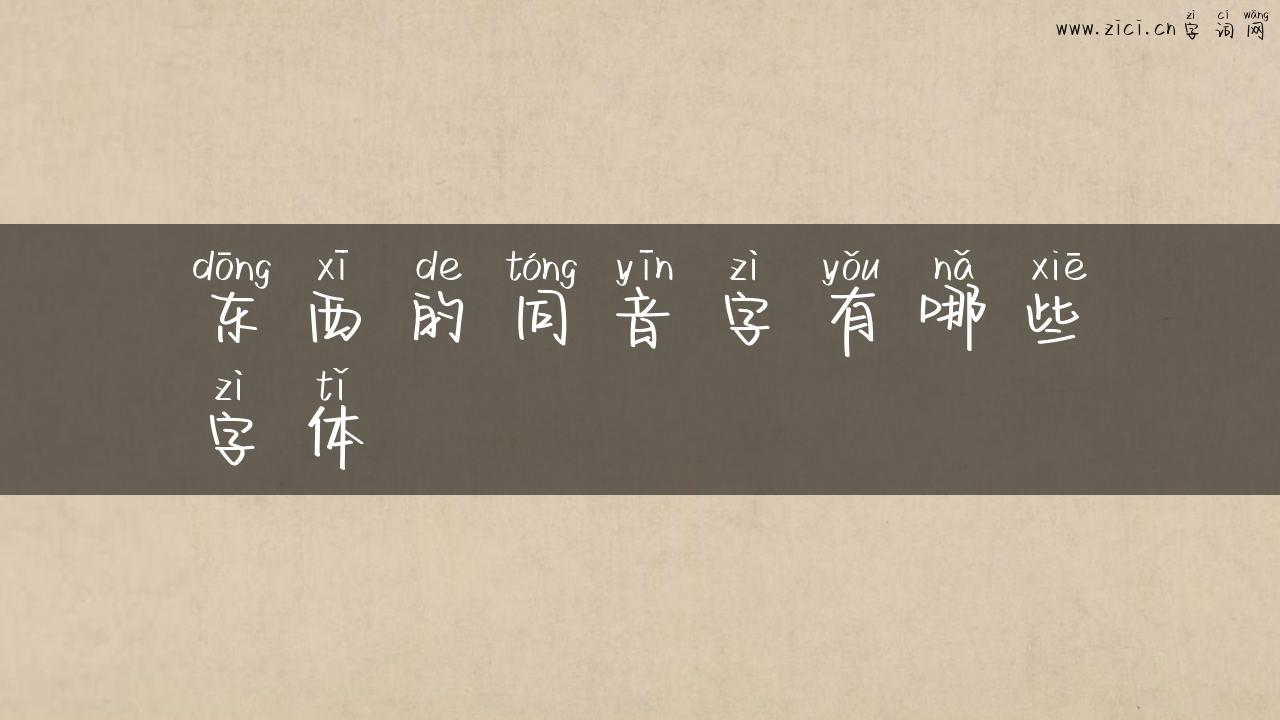 zì cí wǎng
www.zici.cn 字词网
dōng xī de tóng yīn zì yǒu nǎ xiē
东西的同音字有哪些
zì tǐ
字体